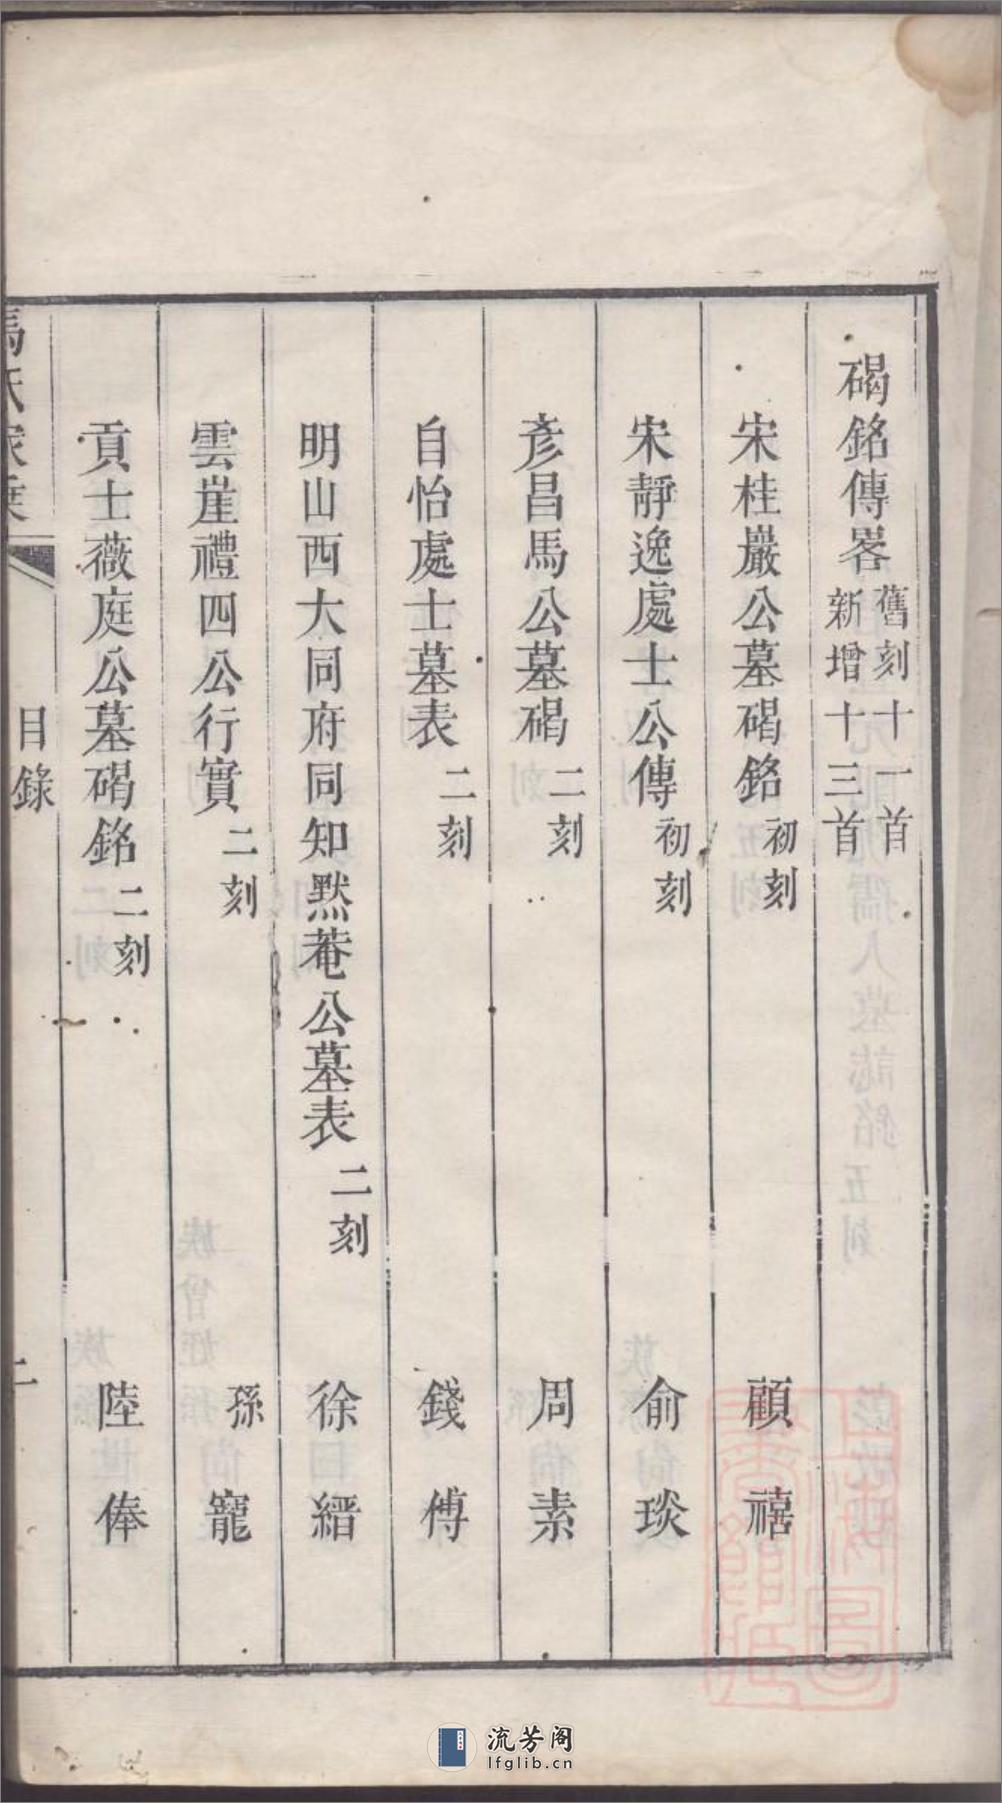 碣銘傳畧 舊刻十一首 新增十三首
宋桂巖公墓碣銘 初刻 顧禧
宋靜逸處士公傳 初刻 俞琰
彥昌馬公墓碣 二刻 周素
自怡處士墓表 二刻 錢傅
明山西大同府同知默菴公墓表 二刻 徐縉
雲崖禮四公行實 二刻 孫寵
貢士薇庭公墓碣銘 二刻 陸俸
馬氏家乘 目錄 二
流芳阁
lfglib.cn